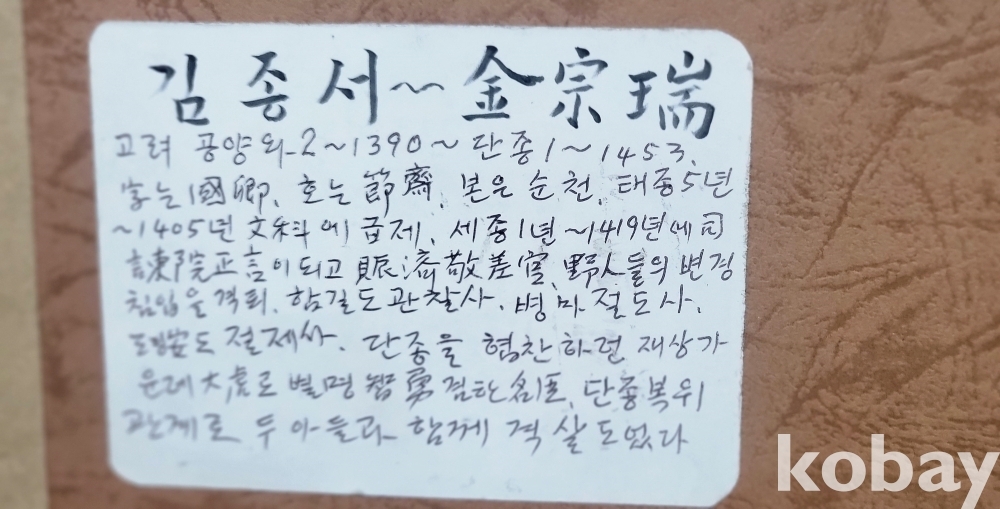 김종서~金宗瑞
고려 공양왕2~1390~단종1~1453.
字는 國卿, 호는 節齋, 본은 순천, 태종5년
~1405년 文科에 급제, 세종1년~1419년에 司
諫院正言이 되고 賑濟敬差官, 野人들의 변경
침입을 격퇴. 함길도관찰사. 병마절도사.
도 절제사. 단종을 협찬하던 재상가
운데 大虎로 별명 智勇겸한 名臣, 단종복위
관계로 두 아들과 함께 격살 되었다
kobay